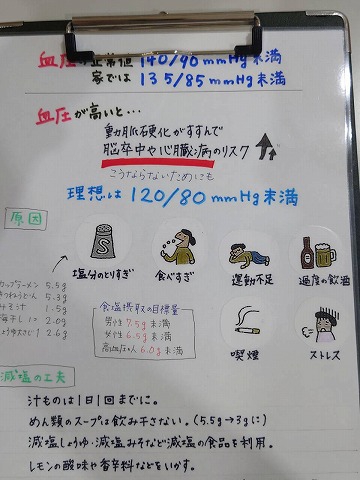 血圧の正常値 140/90mmHg未満
家では 135/85mmHg未満
血圧が高いと…
動脈硬化がすすんで
脳卒中や心臓病のリスク
こうならないためにも
理想は 120/80mmHg未満
原因
S
塩分のとりすぎ
食べすぎ
運動不足
過度の飲酒
カップラーメン 5.5g
きつねうどん 5.3g
みそ汁 1.5g
梅干し1コ 2.0g
しょうゆ大さじ1 2.6g
食塩摂取の目標量
男性 7.5g未満
女性 6.5g未満
高血圧の人 6.0g未満
喫煙
ストレス
減塩の工夫
汁ものは1日1回までに。
めん類のスープは飲み干さない。(5.5g→3gに)
減塩しょうゆ・減塩みそなど減塩の食品を利用。
レモンの酸味や香辛料などをいかす。